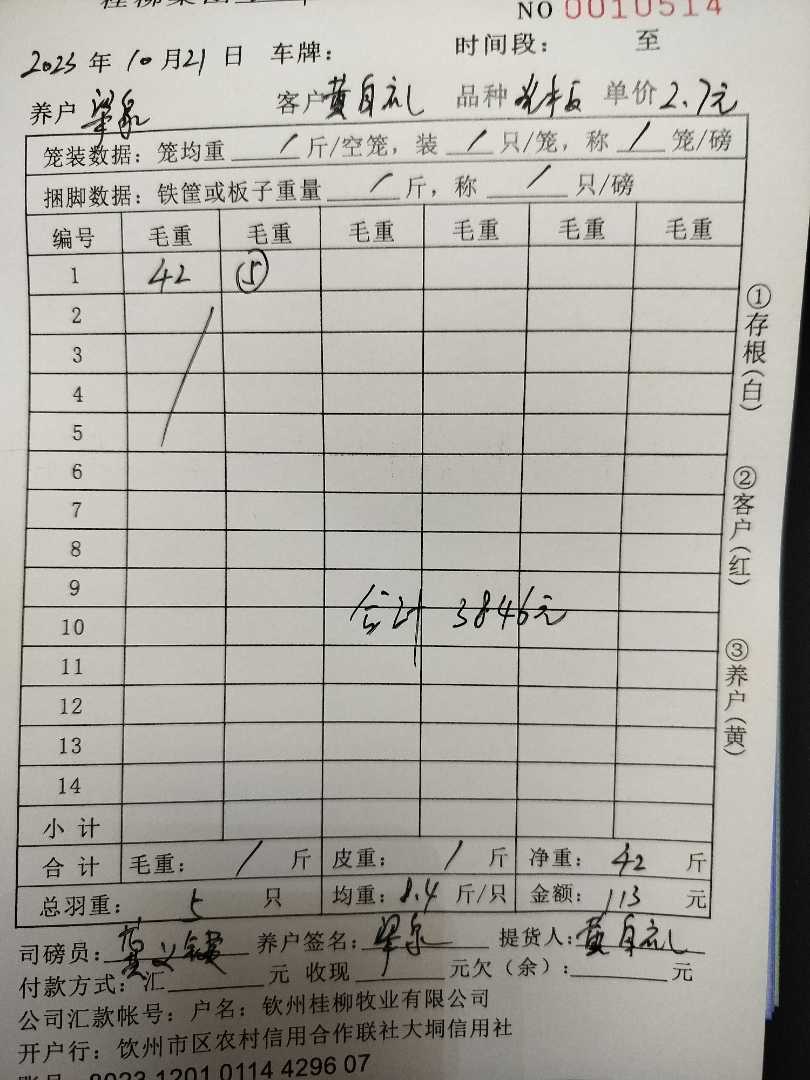 NO 0010514
2023年10月21日 车牌: 时间段: 至
养户 梁泉 客户 黄自礼 品种 单价 2.7元
笼装数据:笼均重 / 斤/空笼,装 / 只/笼,称 / 笼/磅
捆脚数据:铁筐或板子重量 / 斤,称 / 只/磅
编号 毛重 毛重 毛重 毛重 毛重 毛重
1 42 ⑤
2
3
4
5
6
7
8
9
10
合计 3846元
11
12
13
14
小计
合计 毛重: / 斤 皮重: / 斤 净重: 42 斤
总羽重: 5 只 均重: 8.4 斤/只 金额: 113 元
司磅员: 黄义 养户签名: 梁泉 提货人: 黄自礼
付款方式:汇 元 收现 元欠(余): 元
公司汇款帐号:户名:钦州桂柳牧业有限公司
开户行:钦州市区农村信用合作联社大垌信用社
8023 1201 0114 4296 07
①存根(白)
②客户(红)
③养户(黄)